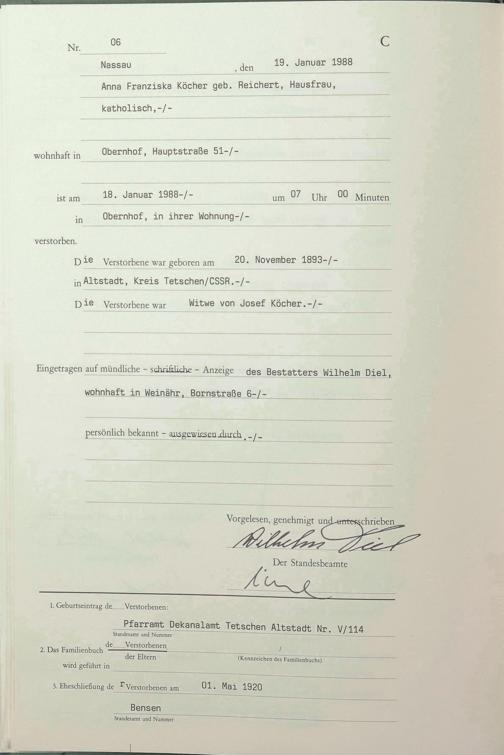 Nr. 06 C
Nassau , den 19. Januar 1988
Anna Franziska Köcher geb. Reichert, Hausfrau,
katholisch,-/-
wohnhaft in Obernhof, Hauptstraße 51-/-
ist am 18. Januar 1988-/- um 07 Uhr 00 Minuten
in Obernhof, in ihrer Wohnung-/-
verstorben.
Die Verstorbene war geboren am 20. November 1893-/-
in Altstadt, Kreis Tetschen/CSSR.-/-
Die Verstorbene war Witwe von Josef Köcher.-/-
Eingetragen auf mündliche – schriftliche – Anzeige des Bestatters Wilhelm Diel,
wohnhaft in Weinähr, Bornstraße 6-/-
persönlich bekannt – ausgewiesen durch.-/-
Vorgelesen, genehmigt und unterschrieben
Wilhelm Diel
Der Standesbeamte
1. Geburtseintrag de Verstorbenen:
Pfarramt Dekanalamt Tetschen Altstadt Nr. V/114
Standesamt und Nummer
2. Das Familienbuch de Verstorbenen /
der Eltern (Kennzeichen des Familienbuchs)
wird geführt in
3. Eheschließung der Verstorbenen am 01. Mai 1920
Bensen
Standesamt und Nummer